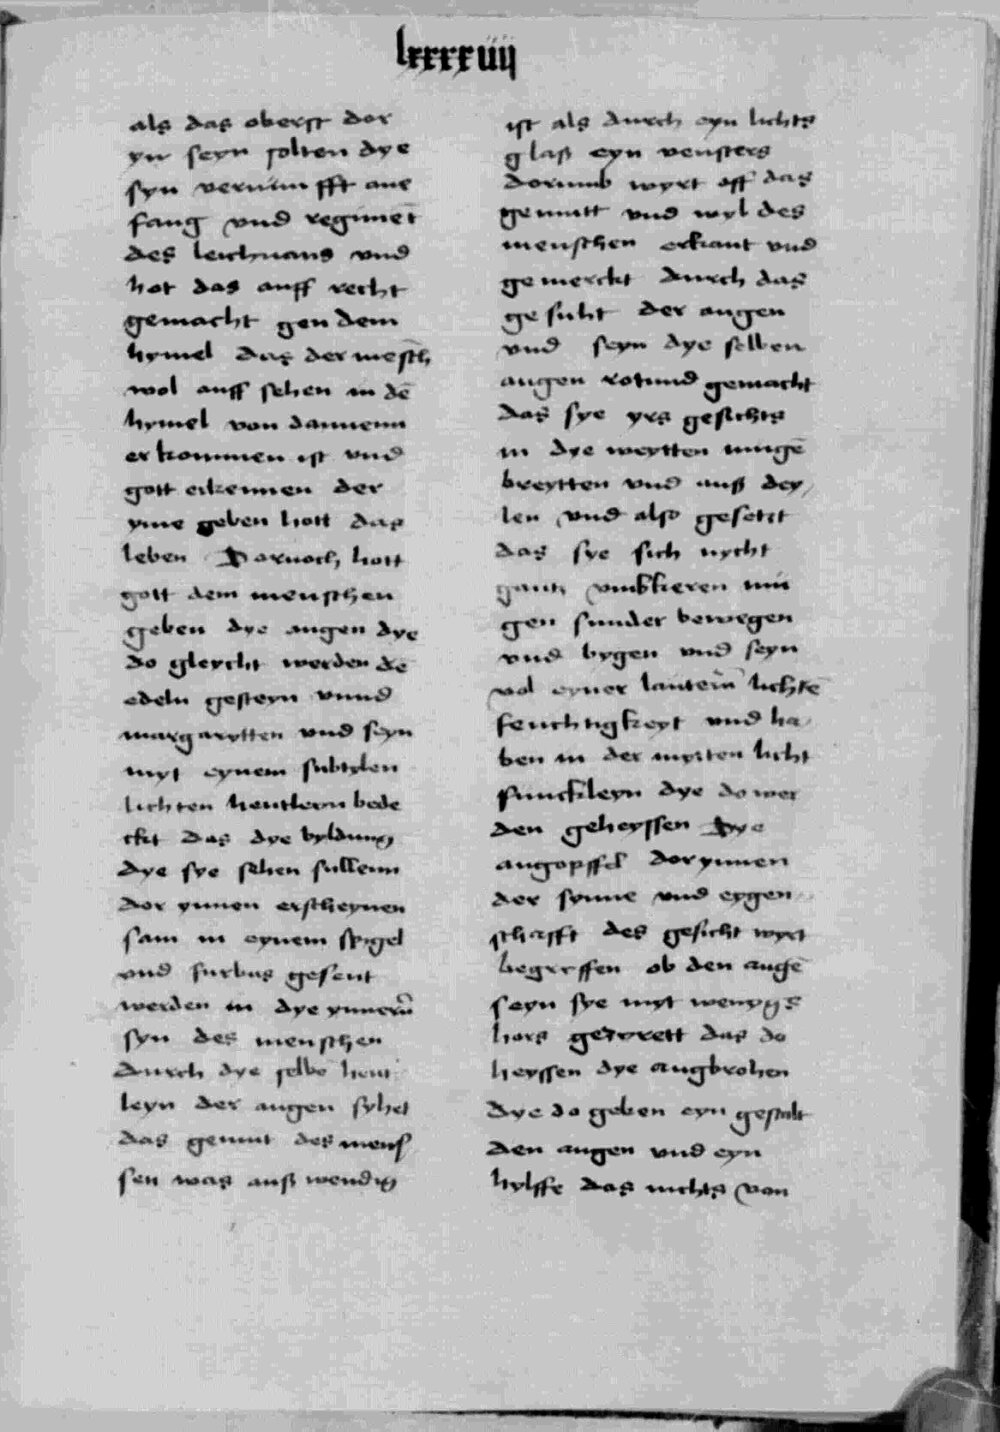 lxxxxiiij
als das oberst dor
yn seyn solten dye
syn vernunfft ane
fang vnd regimēt
des leichnams vnd
hot das auff recht
gemacht gen dem
hymel das der mēsch
wol auff sehen in dē
hymel von dannenn
er kommen ist vnd
gott erkennen der
yme geben hott das
leben Dornoch hott
gott dem menschen
geben dye augen dye
do gleycht werden dē
edeln gesteyn vnnd
margarytten vnd seyn
myt eynem subtylen
lichten heutleyn bede
ckt das dye byldung
dye sye sehen sullenn
dor ynnen erscheynen
sam in eynem spigel
vnd furbas gesent
werden in dye ynnern
syn des menschen
durch dye selbe heut
leyn der augen syhet
das gemut des mens
sen was auß wendig
ist als durch eyn lichts
glaß eyn vensters
dorumb wyrt off das
gemutt vnd wyl des
menschen erkant vnd
gemerckt durch das
gesiht der augen
vnd seyn dye selben
augen rotund gemacht
das sye yrs gesichts
in dye weytten mugē
breytten vnd auß dey
len vnd also gesetzt
das sye sich nycht
gantz vmbkeren mü
gen sunder bewegen
vnd bygen vnd seyn
vol eyner lautern lichtē
feuchtigkeyt vnd ha
ben in der mytten licht
funckleyn dye do wer
den geheyssen Dye
augopffel dorynnen
der synne vnd eygen
schafft des gesicht wyrt
begreffen ob den augē
seyn sye myt wenygs
hors gezyrett das do
heyssen dye augbrohen
dye do geben eyn gestalt
den augen vnd eyn
hylffe das nichts von